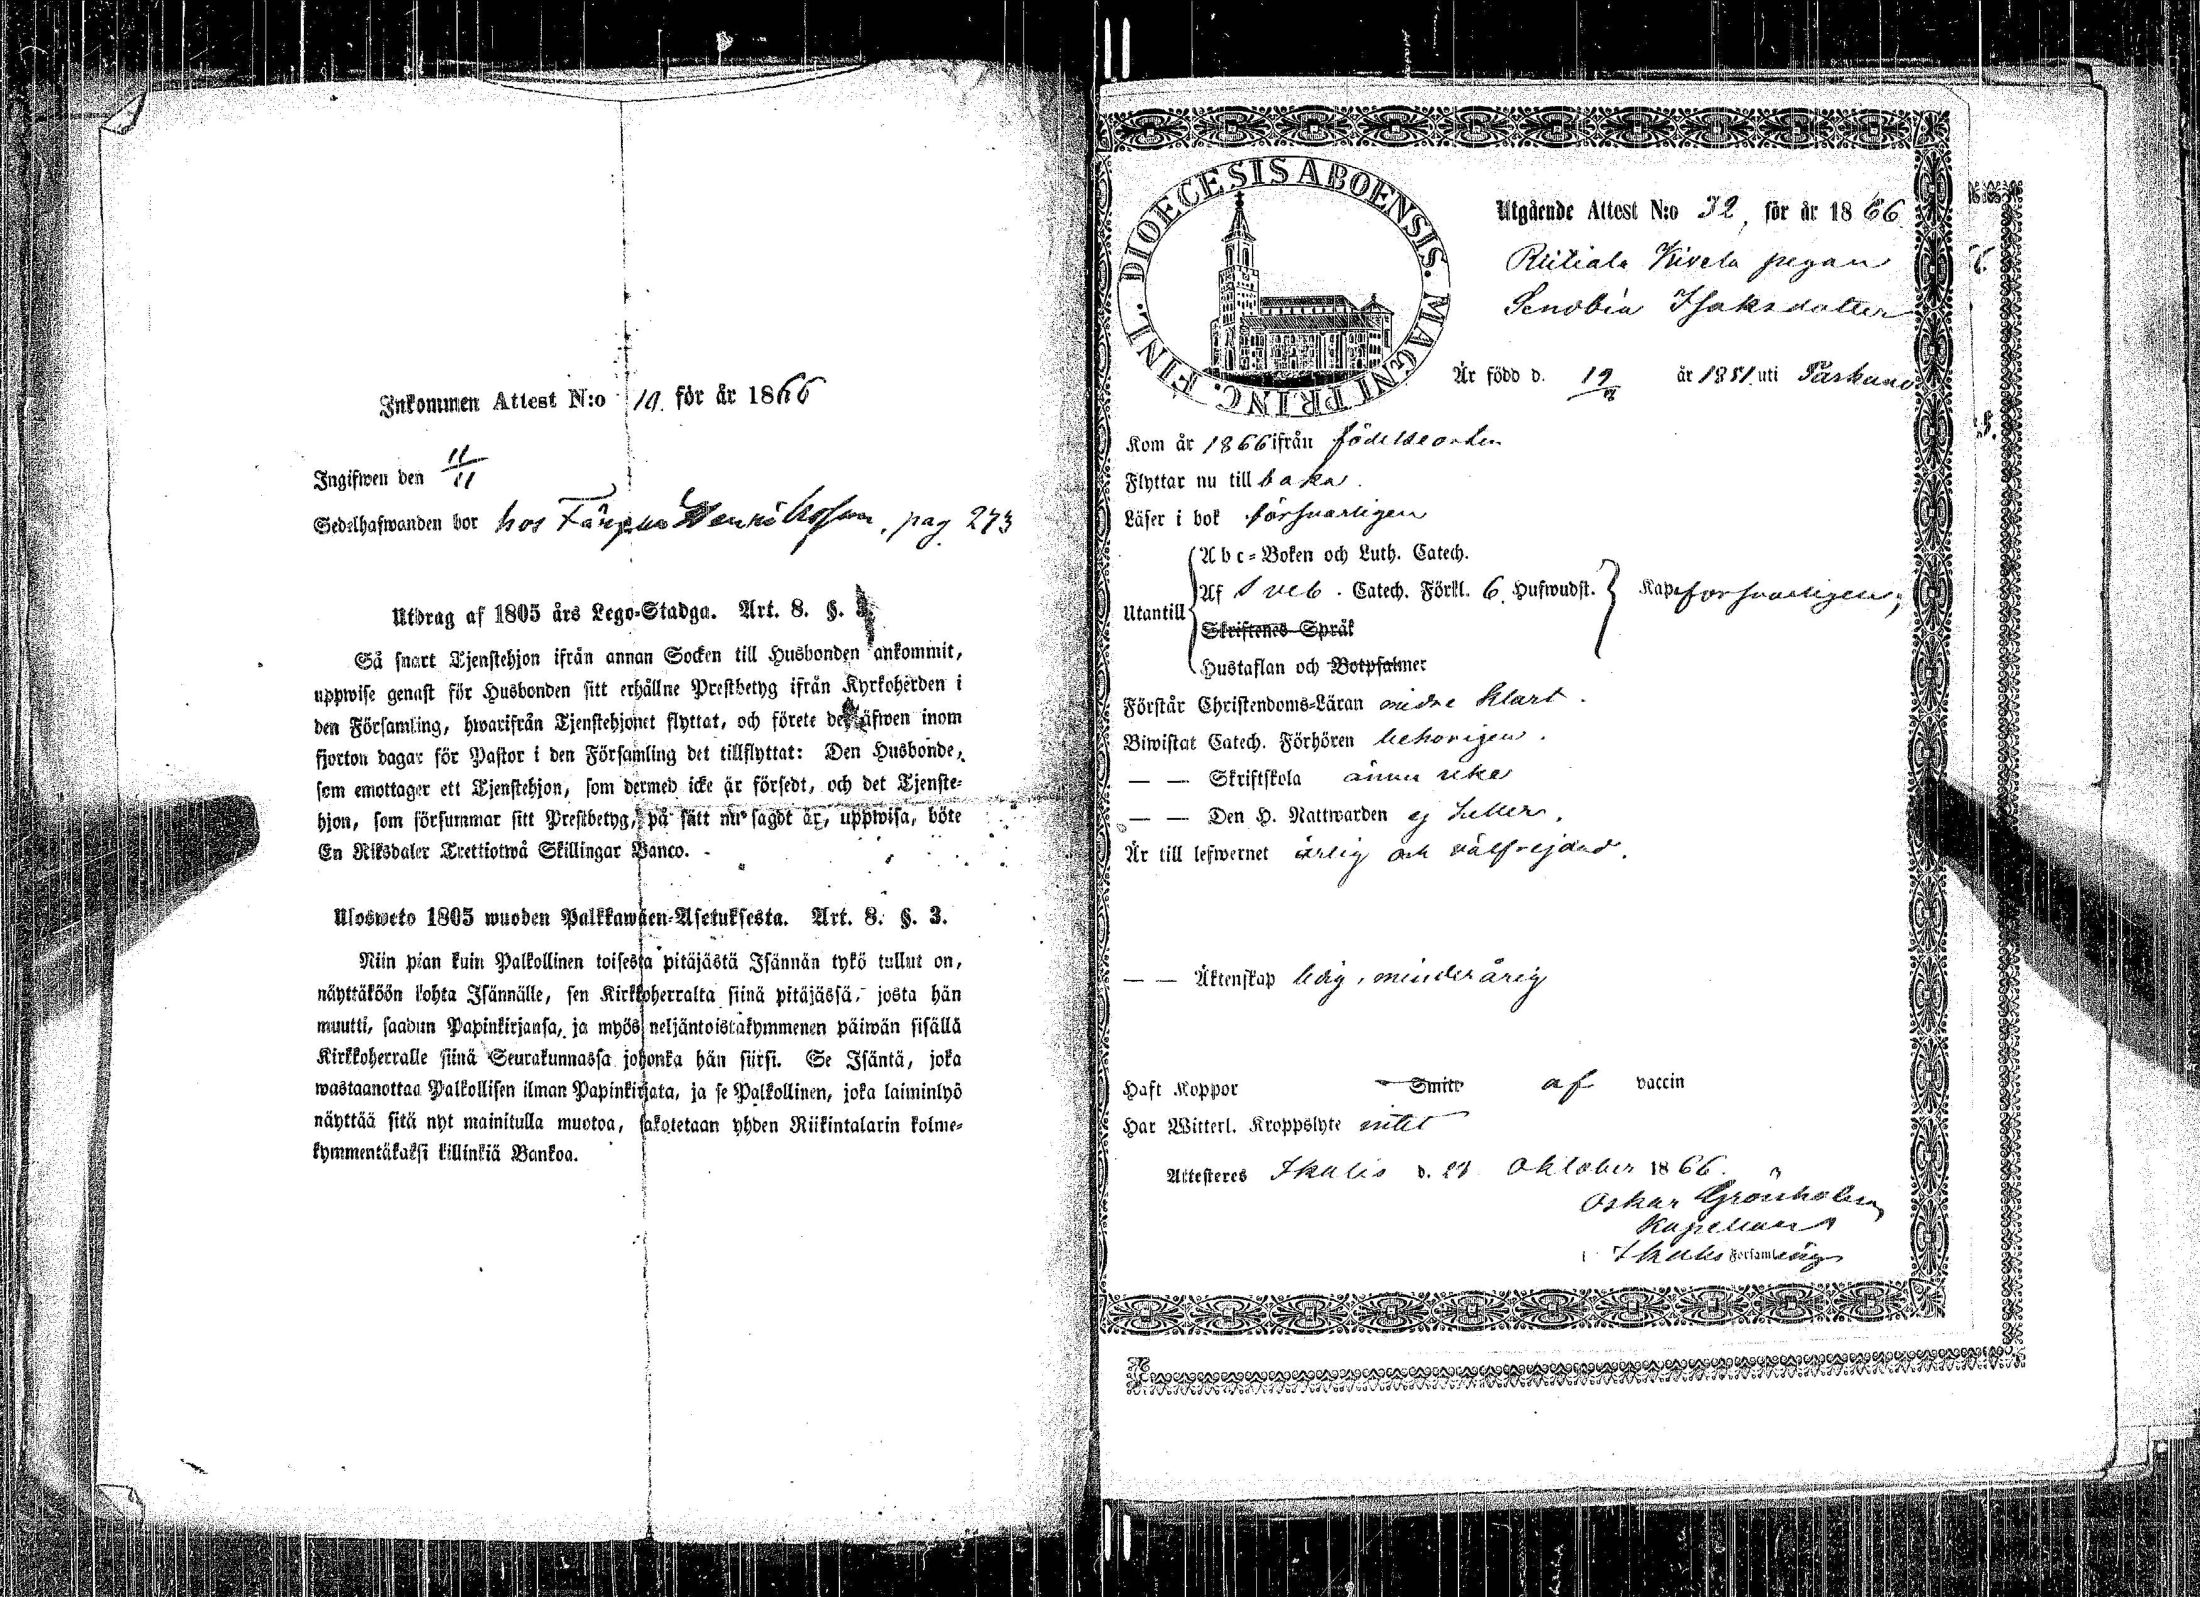 Inkommen Attest N:o 10. för år 1866
Ingifwen den 11/11
Sedelhafwanden bor hos pag 273
Utdrag af 1805 års Lego-Stadga. Art. 8. §. 3.
Så snart Tjenstehjon ifrån annan Socken till Husbonden ankommit,
uppwise genast för Husbonden sitt erhållne Prestbetyg ifrån Kyrkoherden i
den Församling, hwarifrån Tjenstehjonet flyttat, och förete det äfwen inom
fjorton dagar för Pastor i den Församling det tillflyttat: Den Husbonde,
som emottager ett Tjenstehjon, som dermed icke är försedt, och det Tjenste-
hjon, som försummar sitt Prestbetyg, på sätt nu sagdt är, uppwisa, böte
En Riksdaler Trettiotwå Skillingar Banco.
Ulosweto 1805 wuoden Palkkawäen-Asetuksesta. Art. 8. §. 3.
Niin pian kuin Palkollinen toisesta pitäjästä Isännän tykö tullut on,
näyttäköön kohta Isännälle, sen Kirkkoherralta siinä pitäjässä, josta hän
muutti, saadun Papinkirjansa, ja myös neljäntoistakymmenen päiwän sisällä
Kirkkoherralle siinä Seurakunnassa johonka hän siirsi. Se Isäntä, joka
wastaanottaa Palkollisen ilman Papinkirjata, ja se Palkollinen, joka laiminlyö
näyttää sitä nyt mainitulla muotoa, sakotetaan yhden Riikintalarin kolme-
kymmentäkaksi killinkiä Bankoa.
DIOECESIS ABOENSIS. MAGNI PRINC. FINL.
Utgående Attest N:o 32, för år 1866.
Riitiala Kivelä pigan
Senobia Isaksdotter
Är född d. 19 år 1851 uti Parkano
Kom år 1866 ifrån födelseorten
Flyttar nu till baka.
Läser i bok försvarligen
Abc-Boken och Luth. Catech.
Utantill Af Sveb. Catech. Förkl. 6 Hufwudst. Kap. försvarligen;
Skriftenes Språk
Hustaflan och Botpsalmer
Förstår Christendoms-Läran midre klart.
Biwistat Catech. Förhören behörigen.
— — Skriftskola ännu icke
— — Den H. Nattwarden ej heller.
Är till lefwernet ärlig och välfrejdad.
— — Äktenskap ledig, minderårig
Haft Koppor Smitt af vaccin
Har Witterl. Kroppslyte intet
Attesteres Ikalis d. Oktober 1866.
Oskar Grönholm
Kapellan
i Ikalis Församling